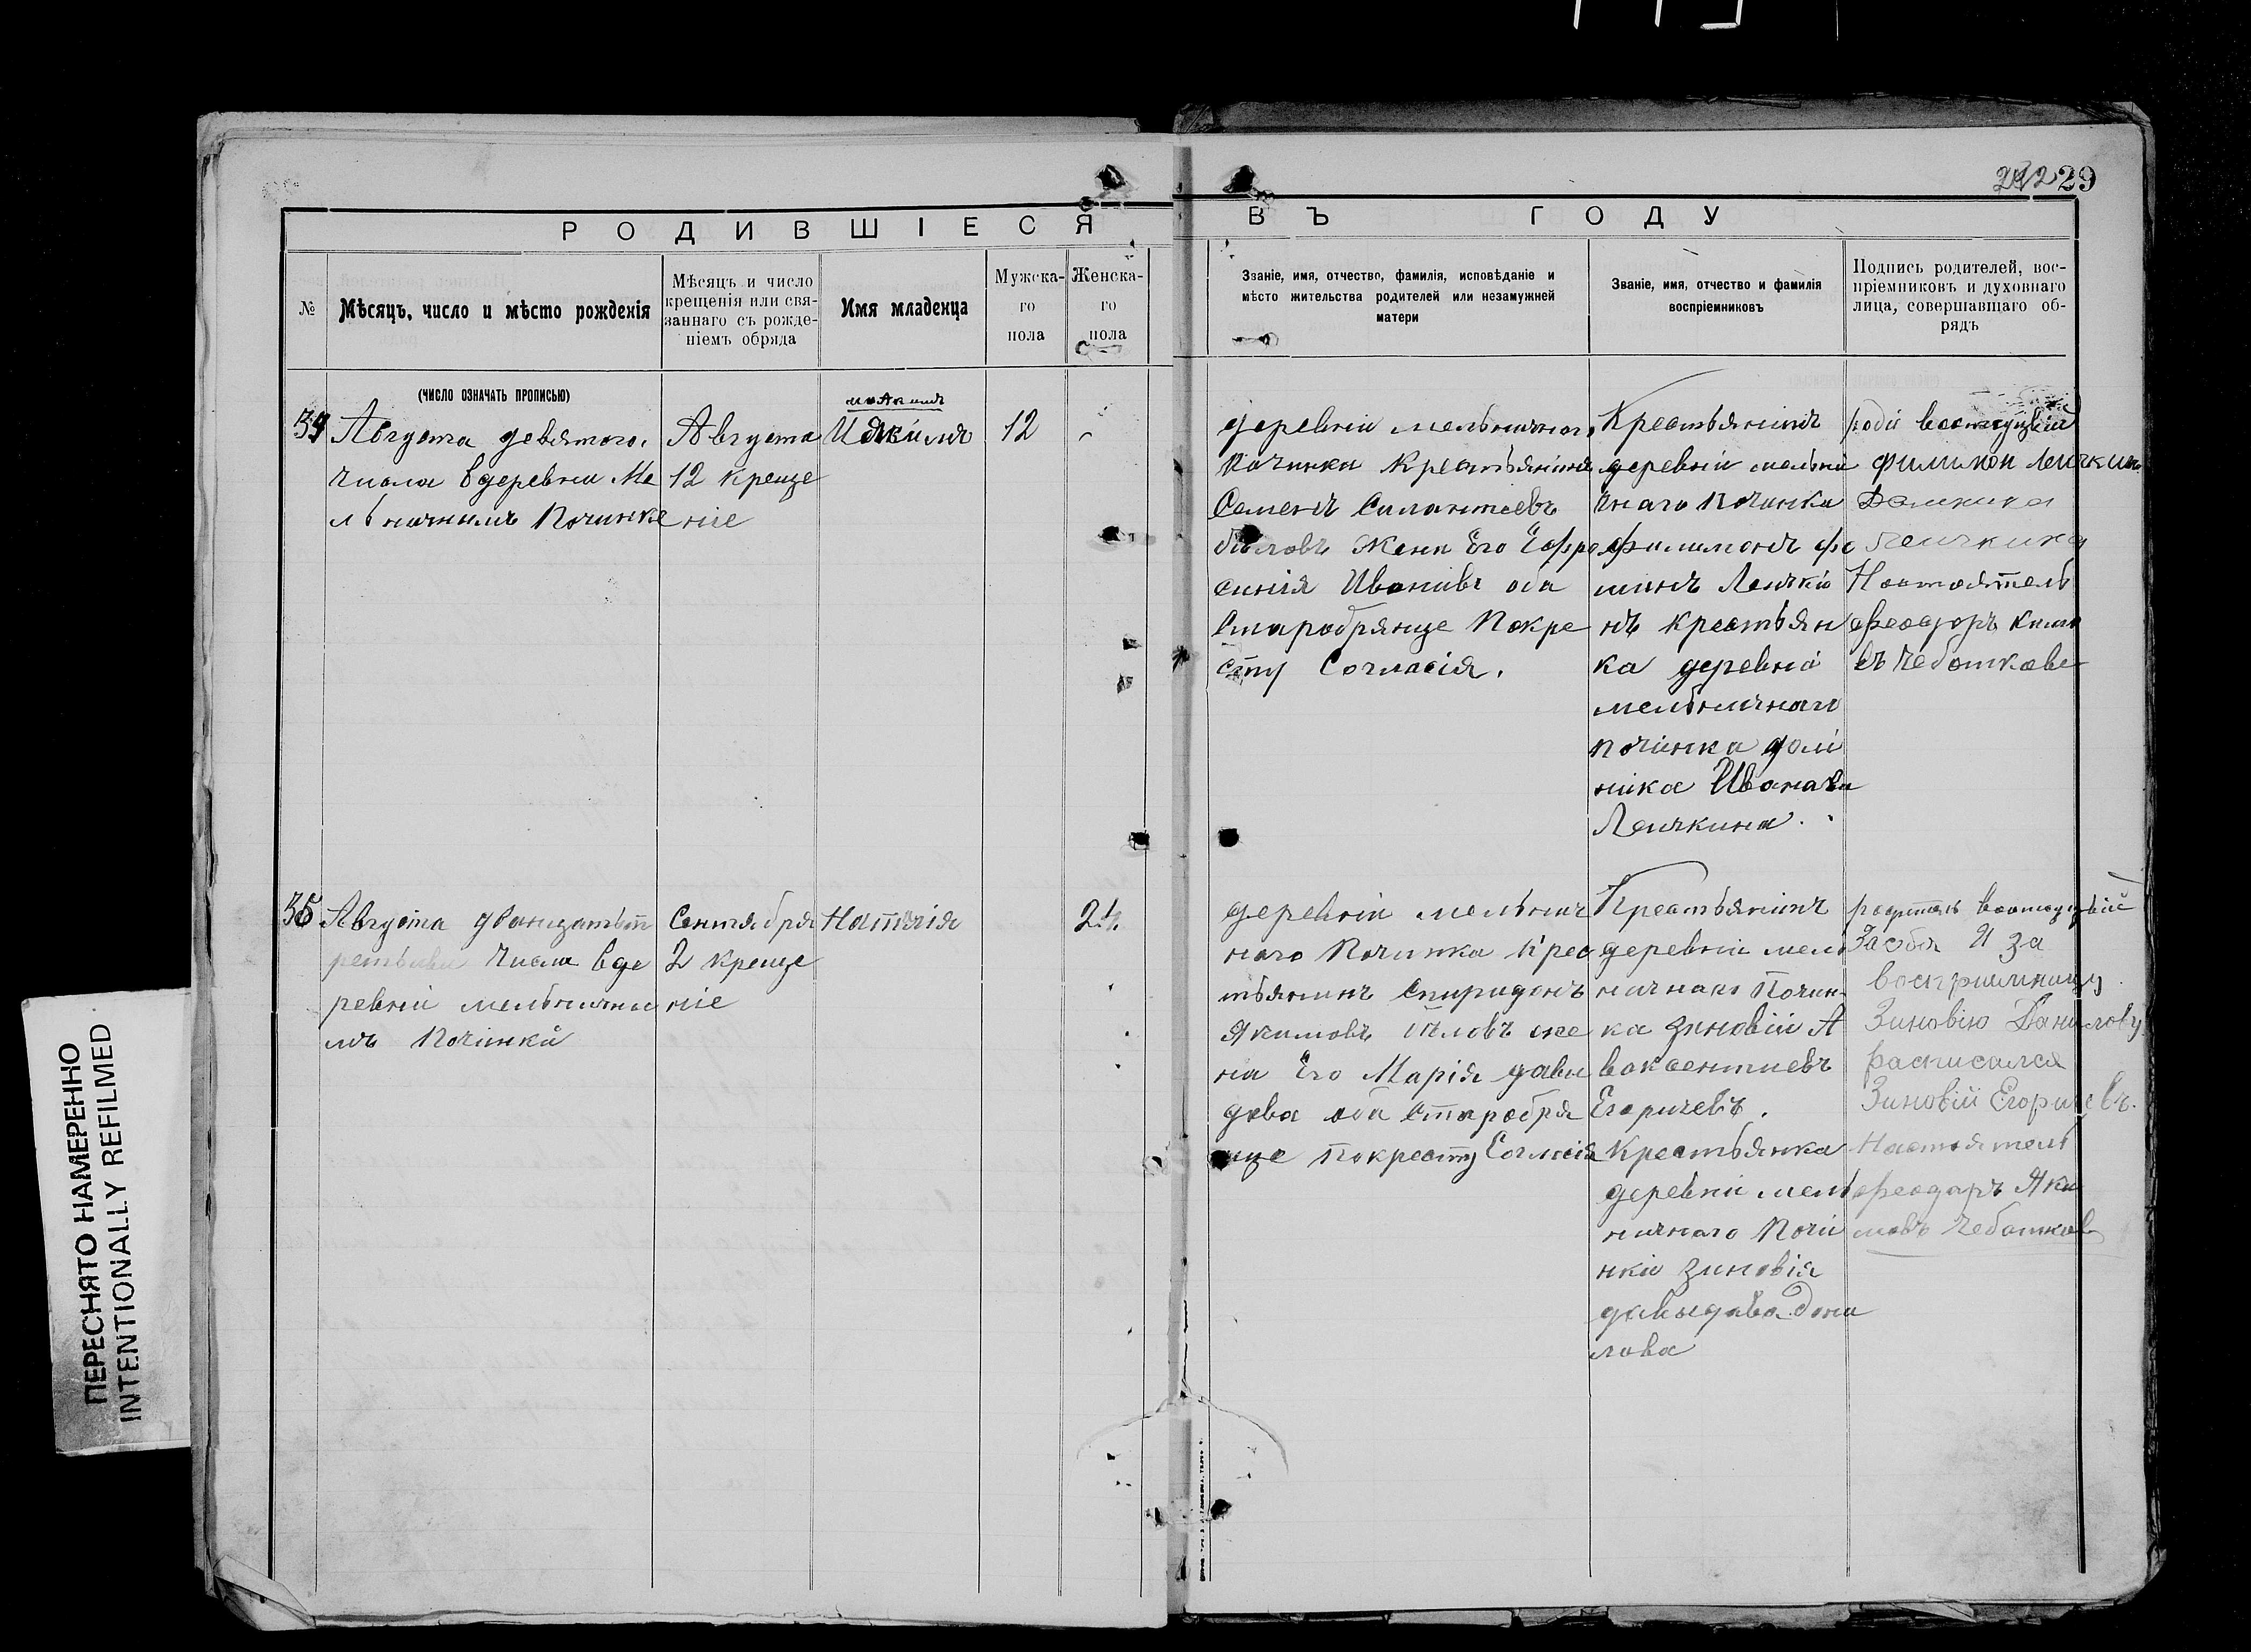 29
РОДИВШІЕСЯ ВЪ ГОДУ
№
Мѣсяцъ, число и мѣсто рожденія
Мѣсяцъ и число
крещенія или свя-
заннаго съ рожде-
ніемъ обряда
Имя младенца
Мужска-
го
пола
Женска-
го
пола
Званіе, имя, отчество, фамилія, исповѣданіе и
мѣсто жительства родителей или незамужней
матери
Званіе, имя, отчество и фамилія
воспріемниковъ
Подпись родителей, вос-
пріемниковъ и духовнаго
лица, совершавшаго об-
рядъ
(число означать прописью)
Августа девятого
числа вдеревни Ме
льничнимъ Починке
Августа
12 креще
ніе
12
деревніи мельничнаго
Починки Крестьянинъ
Семенъ Силантиевъ
Бѣловъ жена Его Ефро
синія Иванивъ оба
Старобрянце Покре
сту Согласія.
Крестьянинъ
деревніи мельни
чнаго Починка
Филимонъ фо
минъ Леички
нъ крестьян
ка деревніи
мельничнаго
починка доми
ника Иванава
Леичкина.
Филимон Леичкин
Домника
Леичкина
Настоятель
Феодоръ
Чеботкове
35
Августа дванцатьт
ретьиви Числа вде
ревніи мельнични
мъ Починки
Сентября
2 креще
ніе
Наталія
24
деревніи мельнич
наго Починка Крес
тьянинъ Спиридонъ
Якимовъ Бѣловъ же
на Его Марія давы
дова оба Старобря
нце покресту Согласія
Крестьянинъ
деревніи мель
ничнаго Почин
ка Зиновіи А
воксентиевъ
Егоричевъ.
Крестьянка
деревніи мель
ничнаго Почи
нки Зиновія
давыдава Дони
лова
За себя И за
восприимницу
Зиновію Данилову
расписался
Зиновій Егоричевъ.
Настоятель
Феодаръ Яки
мовъ Чеботков
ПЕРЕСНЯТО НАМЕРЕННО
INTENTIONALLY REFILMED